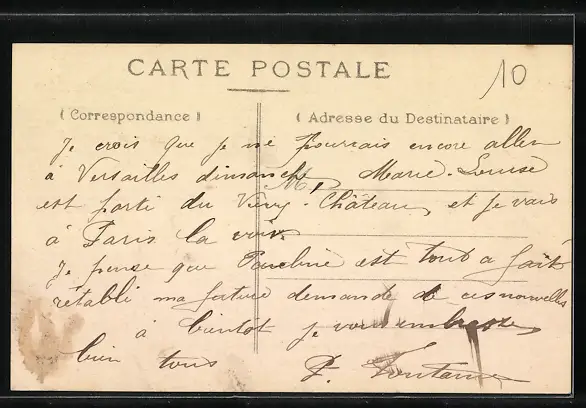 CARTE POSTALE
10
( Correspondance )
( Adresse du Destinataire )
Je crois que je ne pourrais encore aller
à Versailles dimanche, Marie-Louise
M
est parti du Vivy-Château, et je vais
à Paris la voir.
Je pense que Pauline est tout a fait
rétabli ma future demande de ces nouvelles
à bientôt je vous embrasse
bien tous